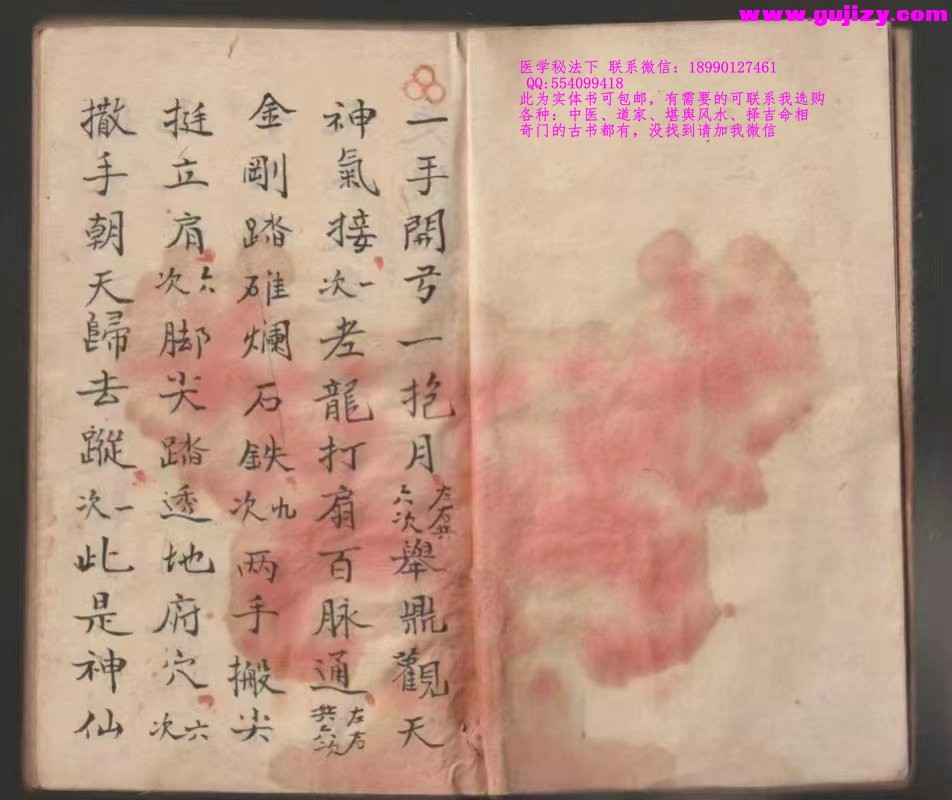 www.gujizy.com
医学秘法下 联系微信：18990127461
QQ:554099418
此为实体书可包邮，有需要的可联系我选购
各种：中医、道家、堪舆风水、择吉命相
奇门的古书都有，没找到请加我微信
一手開弓一抱月左右共六次舉鼎觀天
神氣接一次老龍打扇百脉通左右共六次
金剛踏碓爛石鉄九次两手搬尖
挺立肩六次脚尖踏透地府穴六次
撒手朝天歸去蹤一次此是神仙